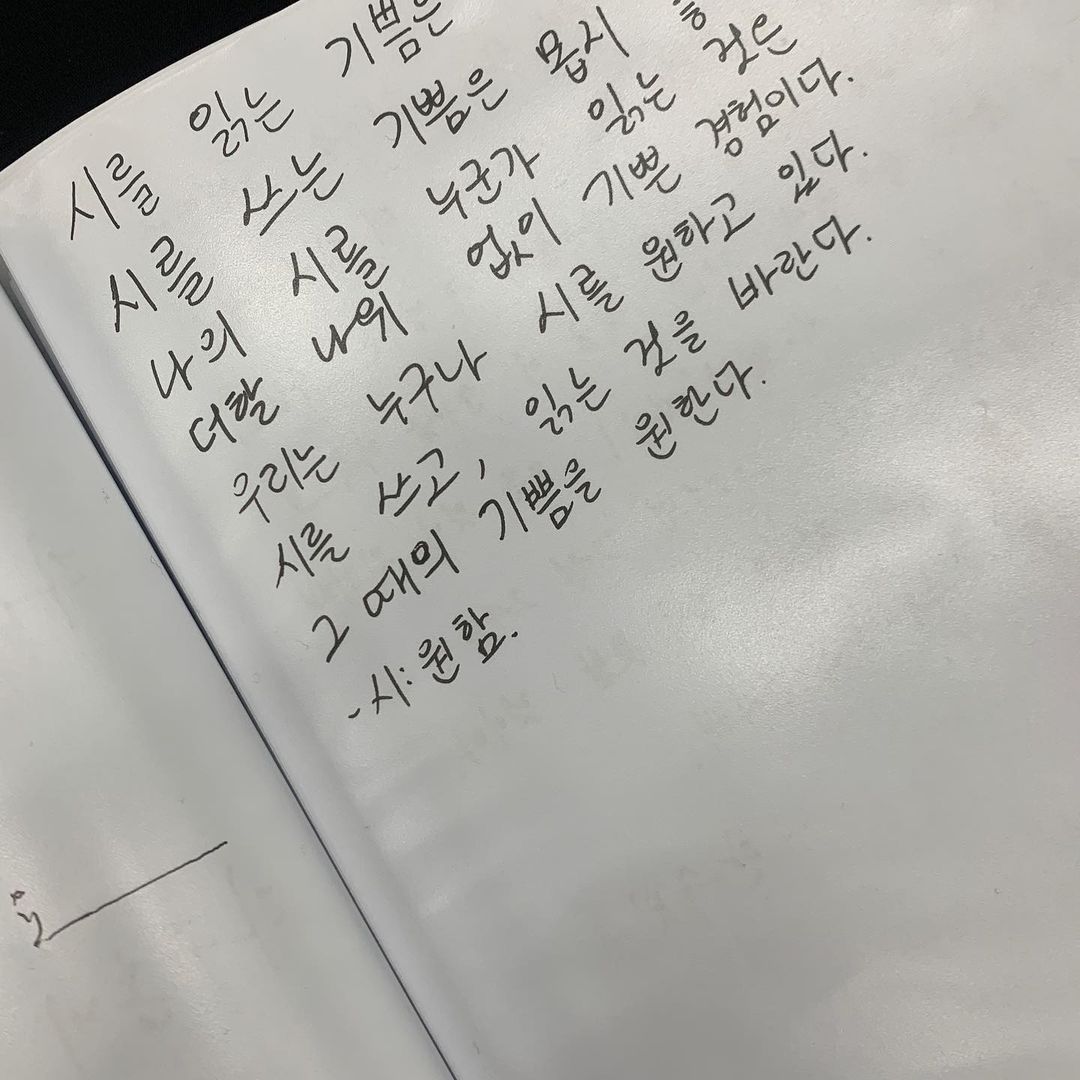 시를 읽는 기쁨은
시를 쓰는 기쁨은 몹시
나의 시를 누군가 읽는 것은
더할 나위 없이 기쁜 경험이다.
우리는 누구나 시를 원하고 있다.
시를 쓰고, 읽는 것을 바란다.
그 때의 기쁨을 원한다.
- 시: 원함.